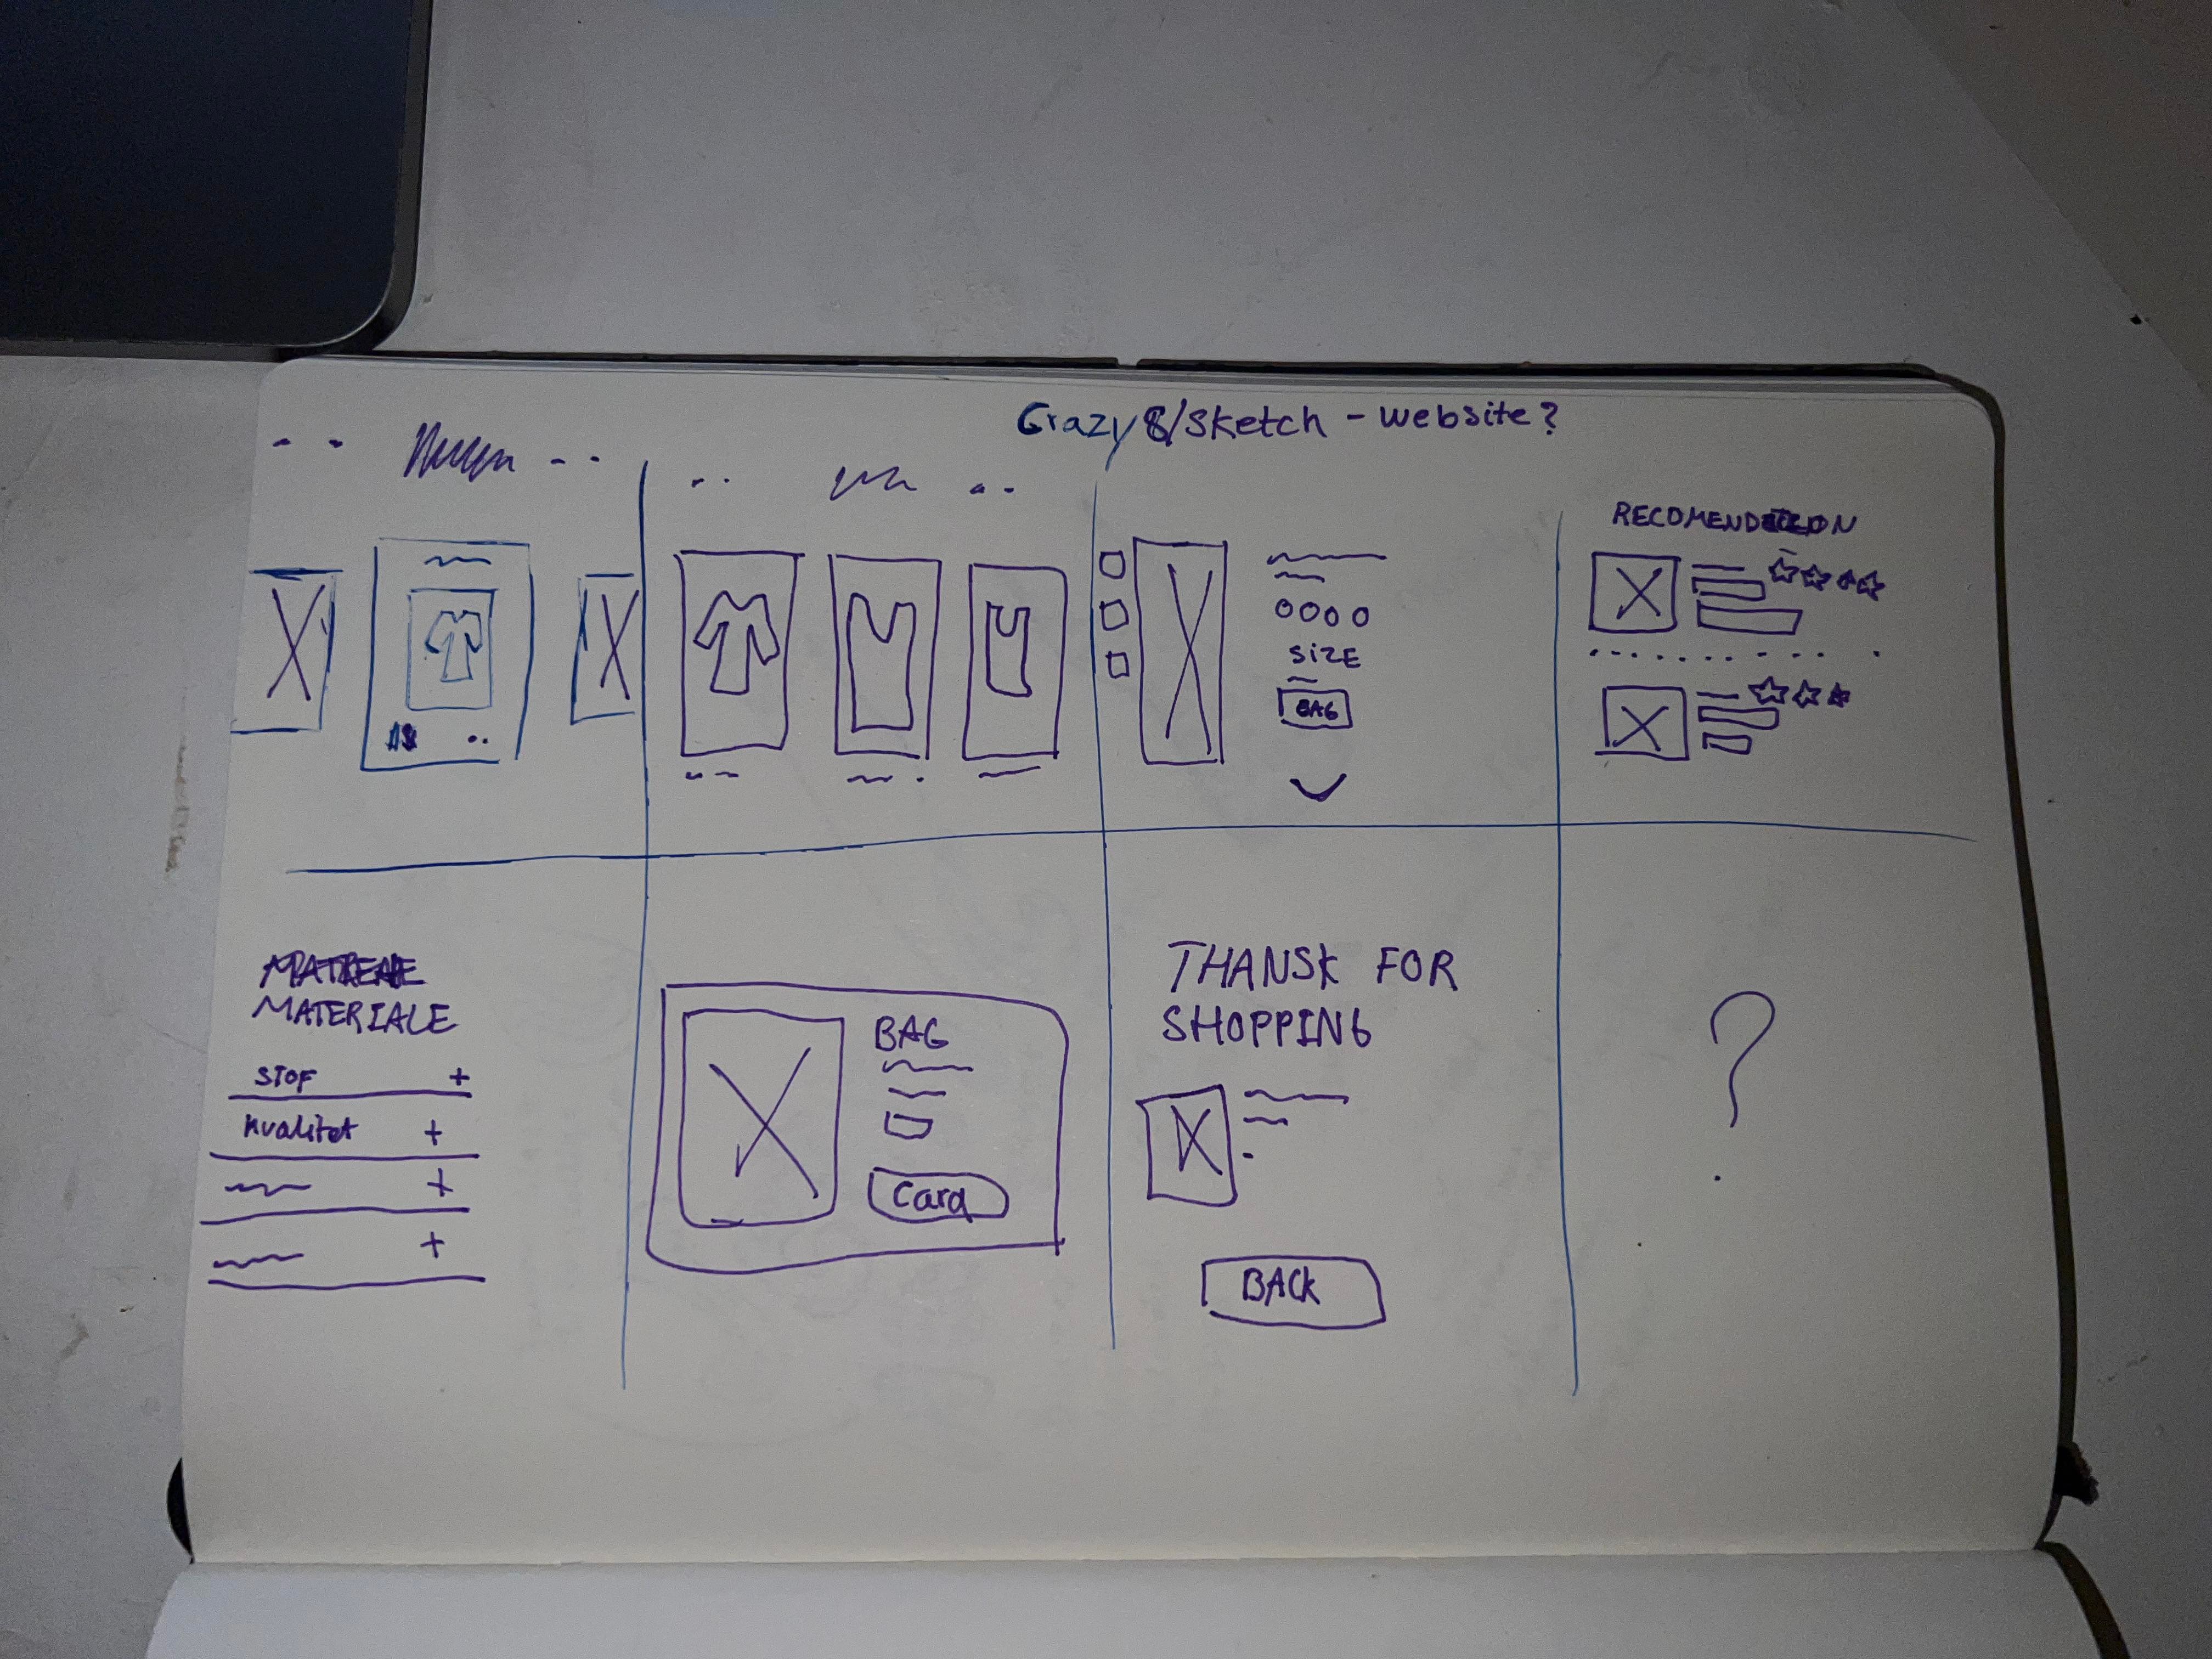 Crazy 8/sketch - website?
SIZE
BAG
RECOMENDATION
MATERIALE
STOF
kvalitet
BAG
Card
THANSK FOR
SHOPPING
BACK
?